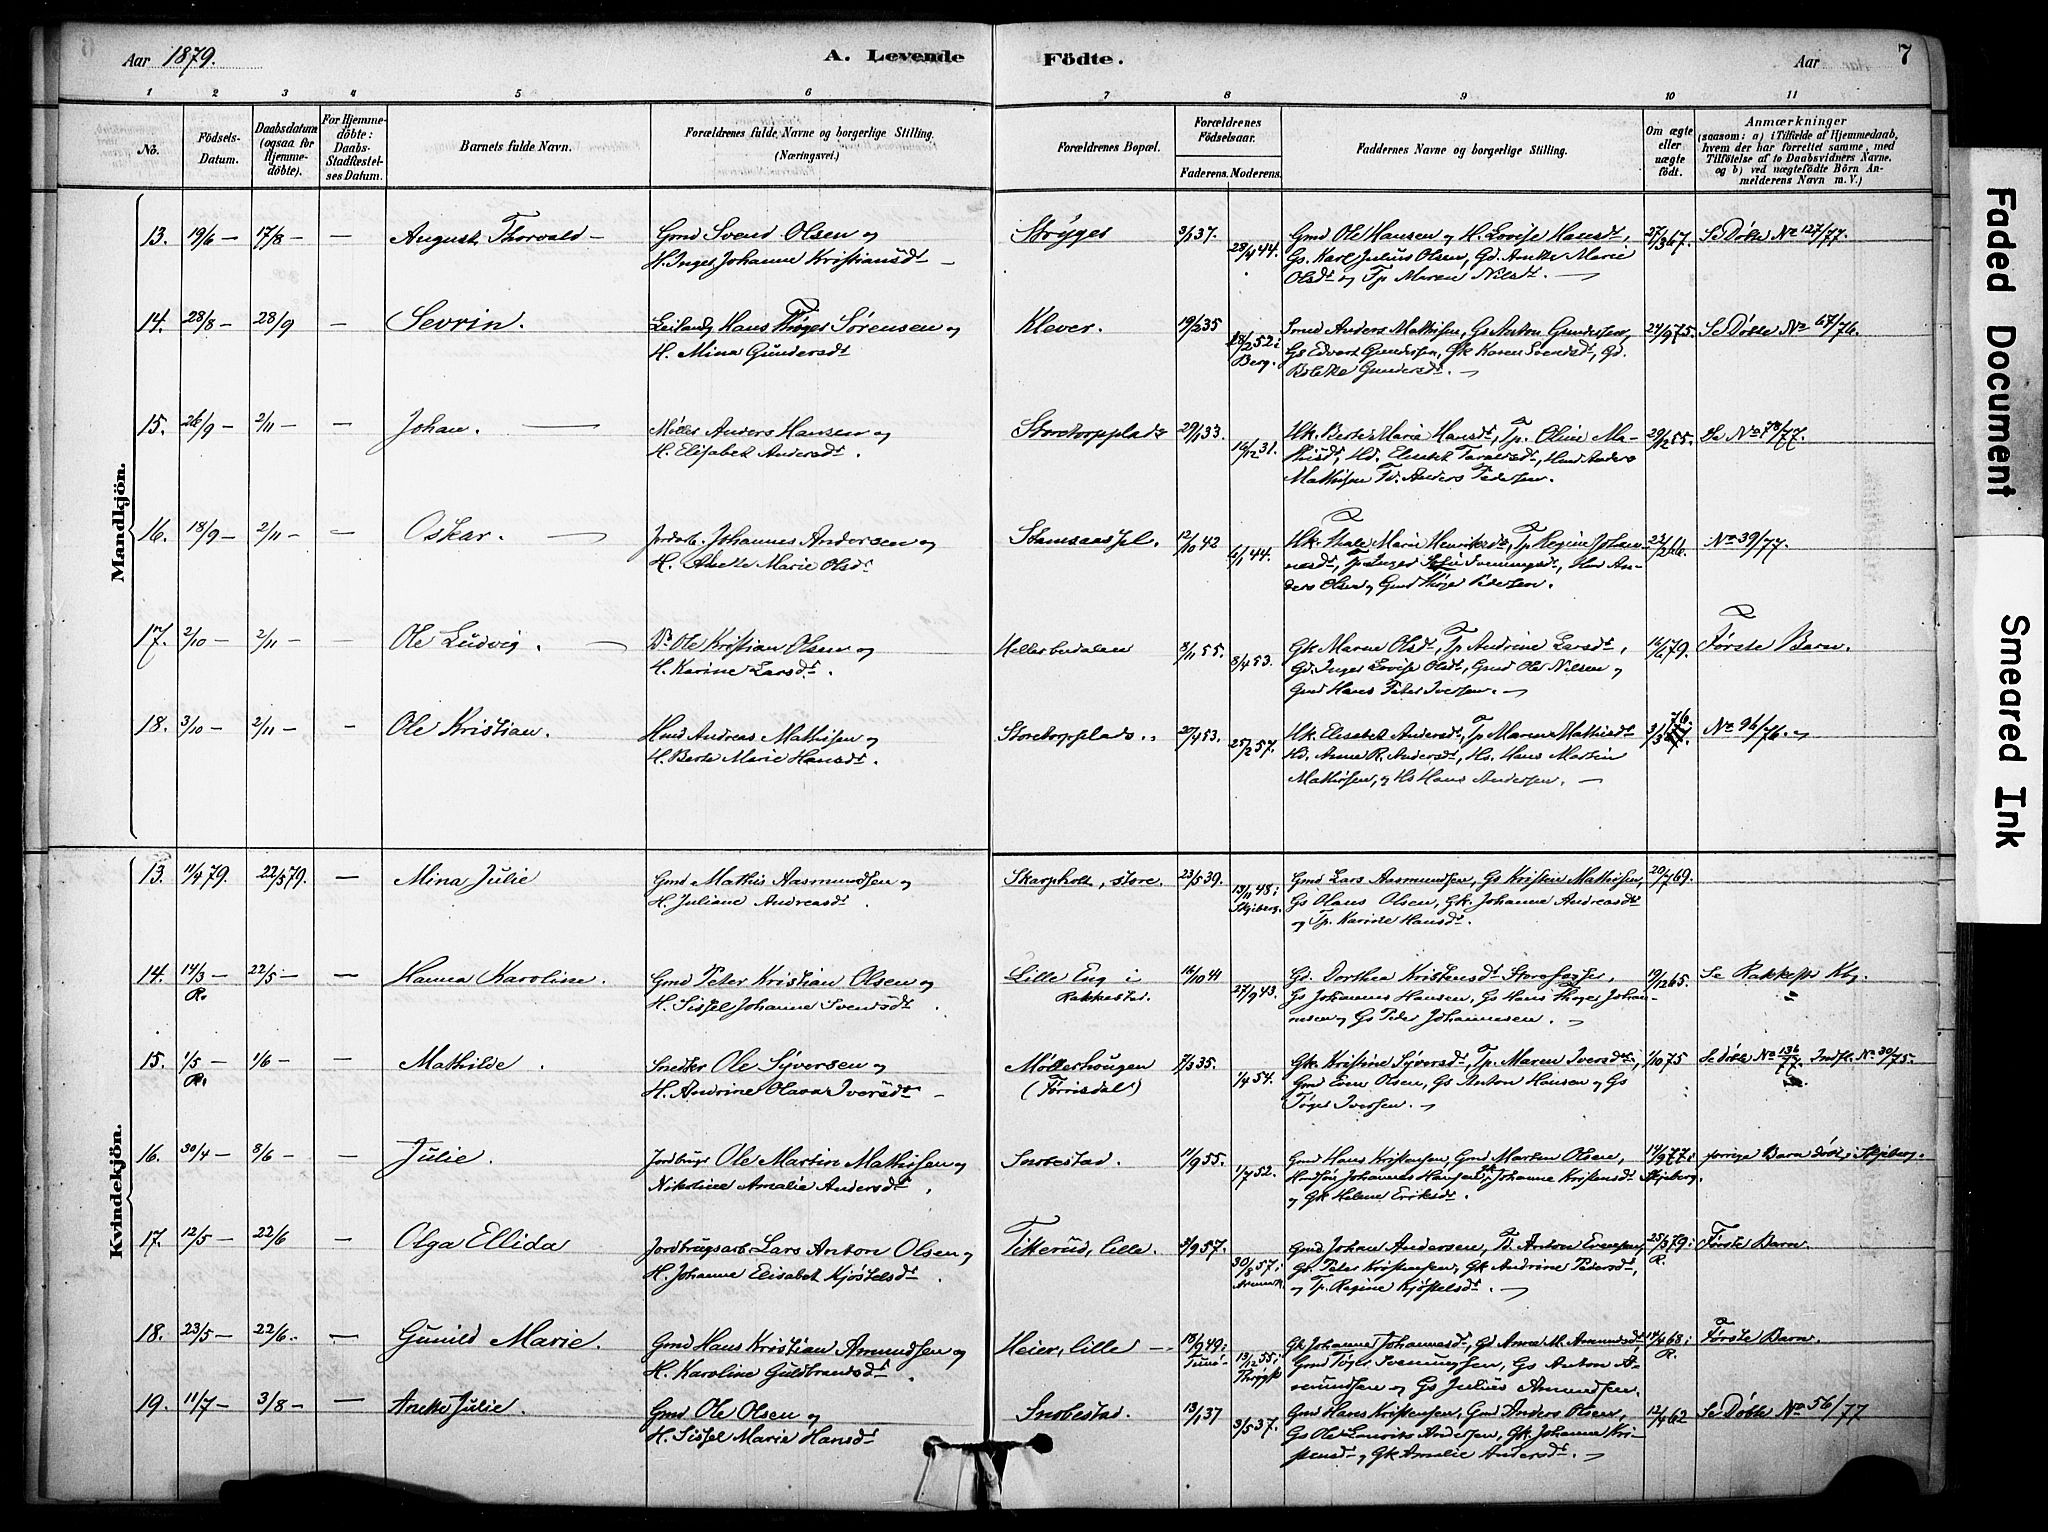 Aar 1879.
A. Levende
Födte.
Aar
7
1 2 3 4 5 6 7 8 9 10 11
No.
Födsels-Datum.
Daabsdatum (ogsaa for Hjemmedöbte).
For Hjemmedöbte: Daabs-Stadfæstelses Datum.
Barnets fulde Navn.
Forældrenes fulde Navne og borgerlige Stilling. (Næringsvei.)
Forældrenes Bopæl.
Forældrenes Födselsaar.
Faderens. Moderens.
Faddernes Navne og borgerlige Stilling.
Om ægte eller uægte födt.
Anmærkninger
(saasom: a) i Tilfælde af Hjemmedaab, hvem der har forrettet samme, med Tilföielse af to Daabsvidners Navne. og b) ved uægtefödte Börn Anmelderens Navn m. V.)
Mandkjön.
13. 19/6 — 17/8 — — August Thorvald —
Gmd Svend Olsen og
H. Inger Johanne Kristiansdt —
28/4 44.
Gmd Ole Hansen og H. Lovise Hansdt,
Gs. Karl Julius Olsen, Gd. Anthe Marie
Olsdt og Tp Maren Nilsdt. —
27/3 67. Se Døbte No 127/77.
14. 28/8 — 28/9 — Sevrin.
Leilandg Hans Thøger Sørensen og
H. Mina Gundersdt
Klever. 19/2 35
28/2 52 i Berg.
Smd Anders Mathisen, Gs Anton Gundersen,
Gs Edvart Gundersen, Gk Karen Svendsdt, Gd.
Bolette Gundersdt. —
24/9 75. Se Døbte No 67/76.
15. 26/9 — 2/11 — — Johan. —
Møller Anders Hansen og
H. Elisabet Andersdt.
Storetorpplads 29/1 33.
16/12 31.
Hk. Berte Marie Hansdt, Tp. Oline Ma-
Mathisen Td. Anders Pedersen.
29/12 55. Se No 78/77.
16. 18/9 — 2/11 — — Oskar. —
Jordarb. Johannes Andersen og
H. Anethe Marie Olsdt
12/10 42
6/1 44.
Hk. Thale Marie Henriksdt, Tp Regine Johan-
nesdt, Tp Inger Sofie Svenningsdt, Hmd An-
ders Olsen og Gmd Thøger Pedersen.
No 39/77.
17. 2/10 — 2/11 — — Ole Ludvig. —
Ole Kristian Olsen og
H. Karine Larsdt.
8/11 55.
8/4 53.
Gk Maren Olsdt, Tp Andrine Larsdt,
Gd. Inger Lovise Olsdt, Gmd Ole Nilsen og
Gmd Hans Peter Iversen. —
16/6 79. Første Barn.
18. 3/10 — 2/11 — — Ole Kristian.
Hmd Andreas Mathisen og
H. Berte Marie Hansdt.
Storetorpplads. 27/4 53.
25/2 57.
Hk. Elisabet Andersdt, Tp Maren Mathisdt
Hd. Anne R. Andersdt, Hs. Hans Martin
Mathisen, og Hs Hans Andersen. —
No 96/76.
Kvindekjön.
13. 11/4 79. 22/5 79. — Mina Julie
Gmd Mathis Aasmundsen og
H. Juliane Andreasdt.
Skarpholt, store. 23/5 39.
13/11 48 i Skjeberg.
Gmd Lars Aasmundsen, Gs Kristin Mathisen,
Gs Olaus Olsen, Gk. Johanne Andreasdt
og Tp. Karine Hansdt.
20/7 69.
14. 14/3 — 22/5 — — Hanna Karoline.
R.
Gmd Peter Kristian Olsen og
H. Sissel Johanne Svendsdt.
Lille Eng i
Rakkestad.
16/10 41
27/9 43.
Gd. Dorthea Kristensdt Storefosser,
Gs Johannes Hansen, Gs Hans Thøger Johan-
nesen og Gs Peder Johannesen. —
19/12 65. Se Rakkest Kbg.
15. 1/5 — 1/6 — — Mathilde.
R.
Snedker Ole Syversen og
H. Andrine Olava Iversdt —
Møllerhougen
(Tørrisdal)
7/3 35.
1/4 54.
Gk. Kristine Syversdt, Tp. Maren Iversdt,
Gmd Even Olsen, Gs Anton Hansen og Gs
Tøger Iversen. —
1/10 75 Se Døbte No 136/77. Indf. No 30/75.
16. 30/4 — 8/6 — — Julie.
Jordbrugr Ole Martin Mathisen og
Nikoline Amalie Andersdt.
Snobestad. 11/9 55.
1/7 52.
Gmd Hans Kristensen, Gmd Marten Olsen,
Johannes Hansen, Gk Johanne Kristensdt
og Gk Helene Eriksdt.
14/9 77 i Skjeberg. forrige Barn døbt i Skjeberg.
17. 12/5 — 22/6 — Olga Ellida
Jordbrugsarb. Lars Anton Olsen og
H. Johanne Elisabet Kjøstelsdt.
Titterud, lille. 3/9 57.
30/8 57 i Aremark
Gmd Johan Andersen, Td. Anton Evensen,
Gs. Peter Kristensen, Gk Andrine Pedersdt,
og Tp. Regine Kjøstelsdt. —
25/3 79 i R. Første Barn.
18. 23/5 — 22/6. — Gunild Marie.
Gmd Hans Kristian Amundsen og
H. Karoline Guldbrandsdt.
Heier, lille — 18/9 49 i
13/12 55 i
Gk Johanne Johannesdt, Gd Anne M. Amundsdt
Gmd Tøger Svenningsen, Gs Anton A-
mundsen og Gs Julius Amundsen.
14/4 68 i R. Første Barn.
19. 11/7 — 3/8 — — Anethe Julie.
Gmd Ole Olsen og
H. Sissel Marie Hansdt
Snobestad. 13/1 37
3/5 37.
Gmd Hans Kristensen, Gmd Anders Olsen,
Gs Ole Lauritz Andersen, Gk. Johanne Kri-
stensdt og Gk Amalie Andersdt. —
12/4 62 Se Døbte No 56/77
Faded Document
Smeared Ink